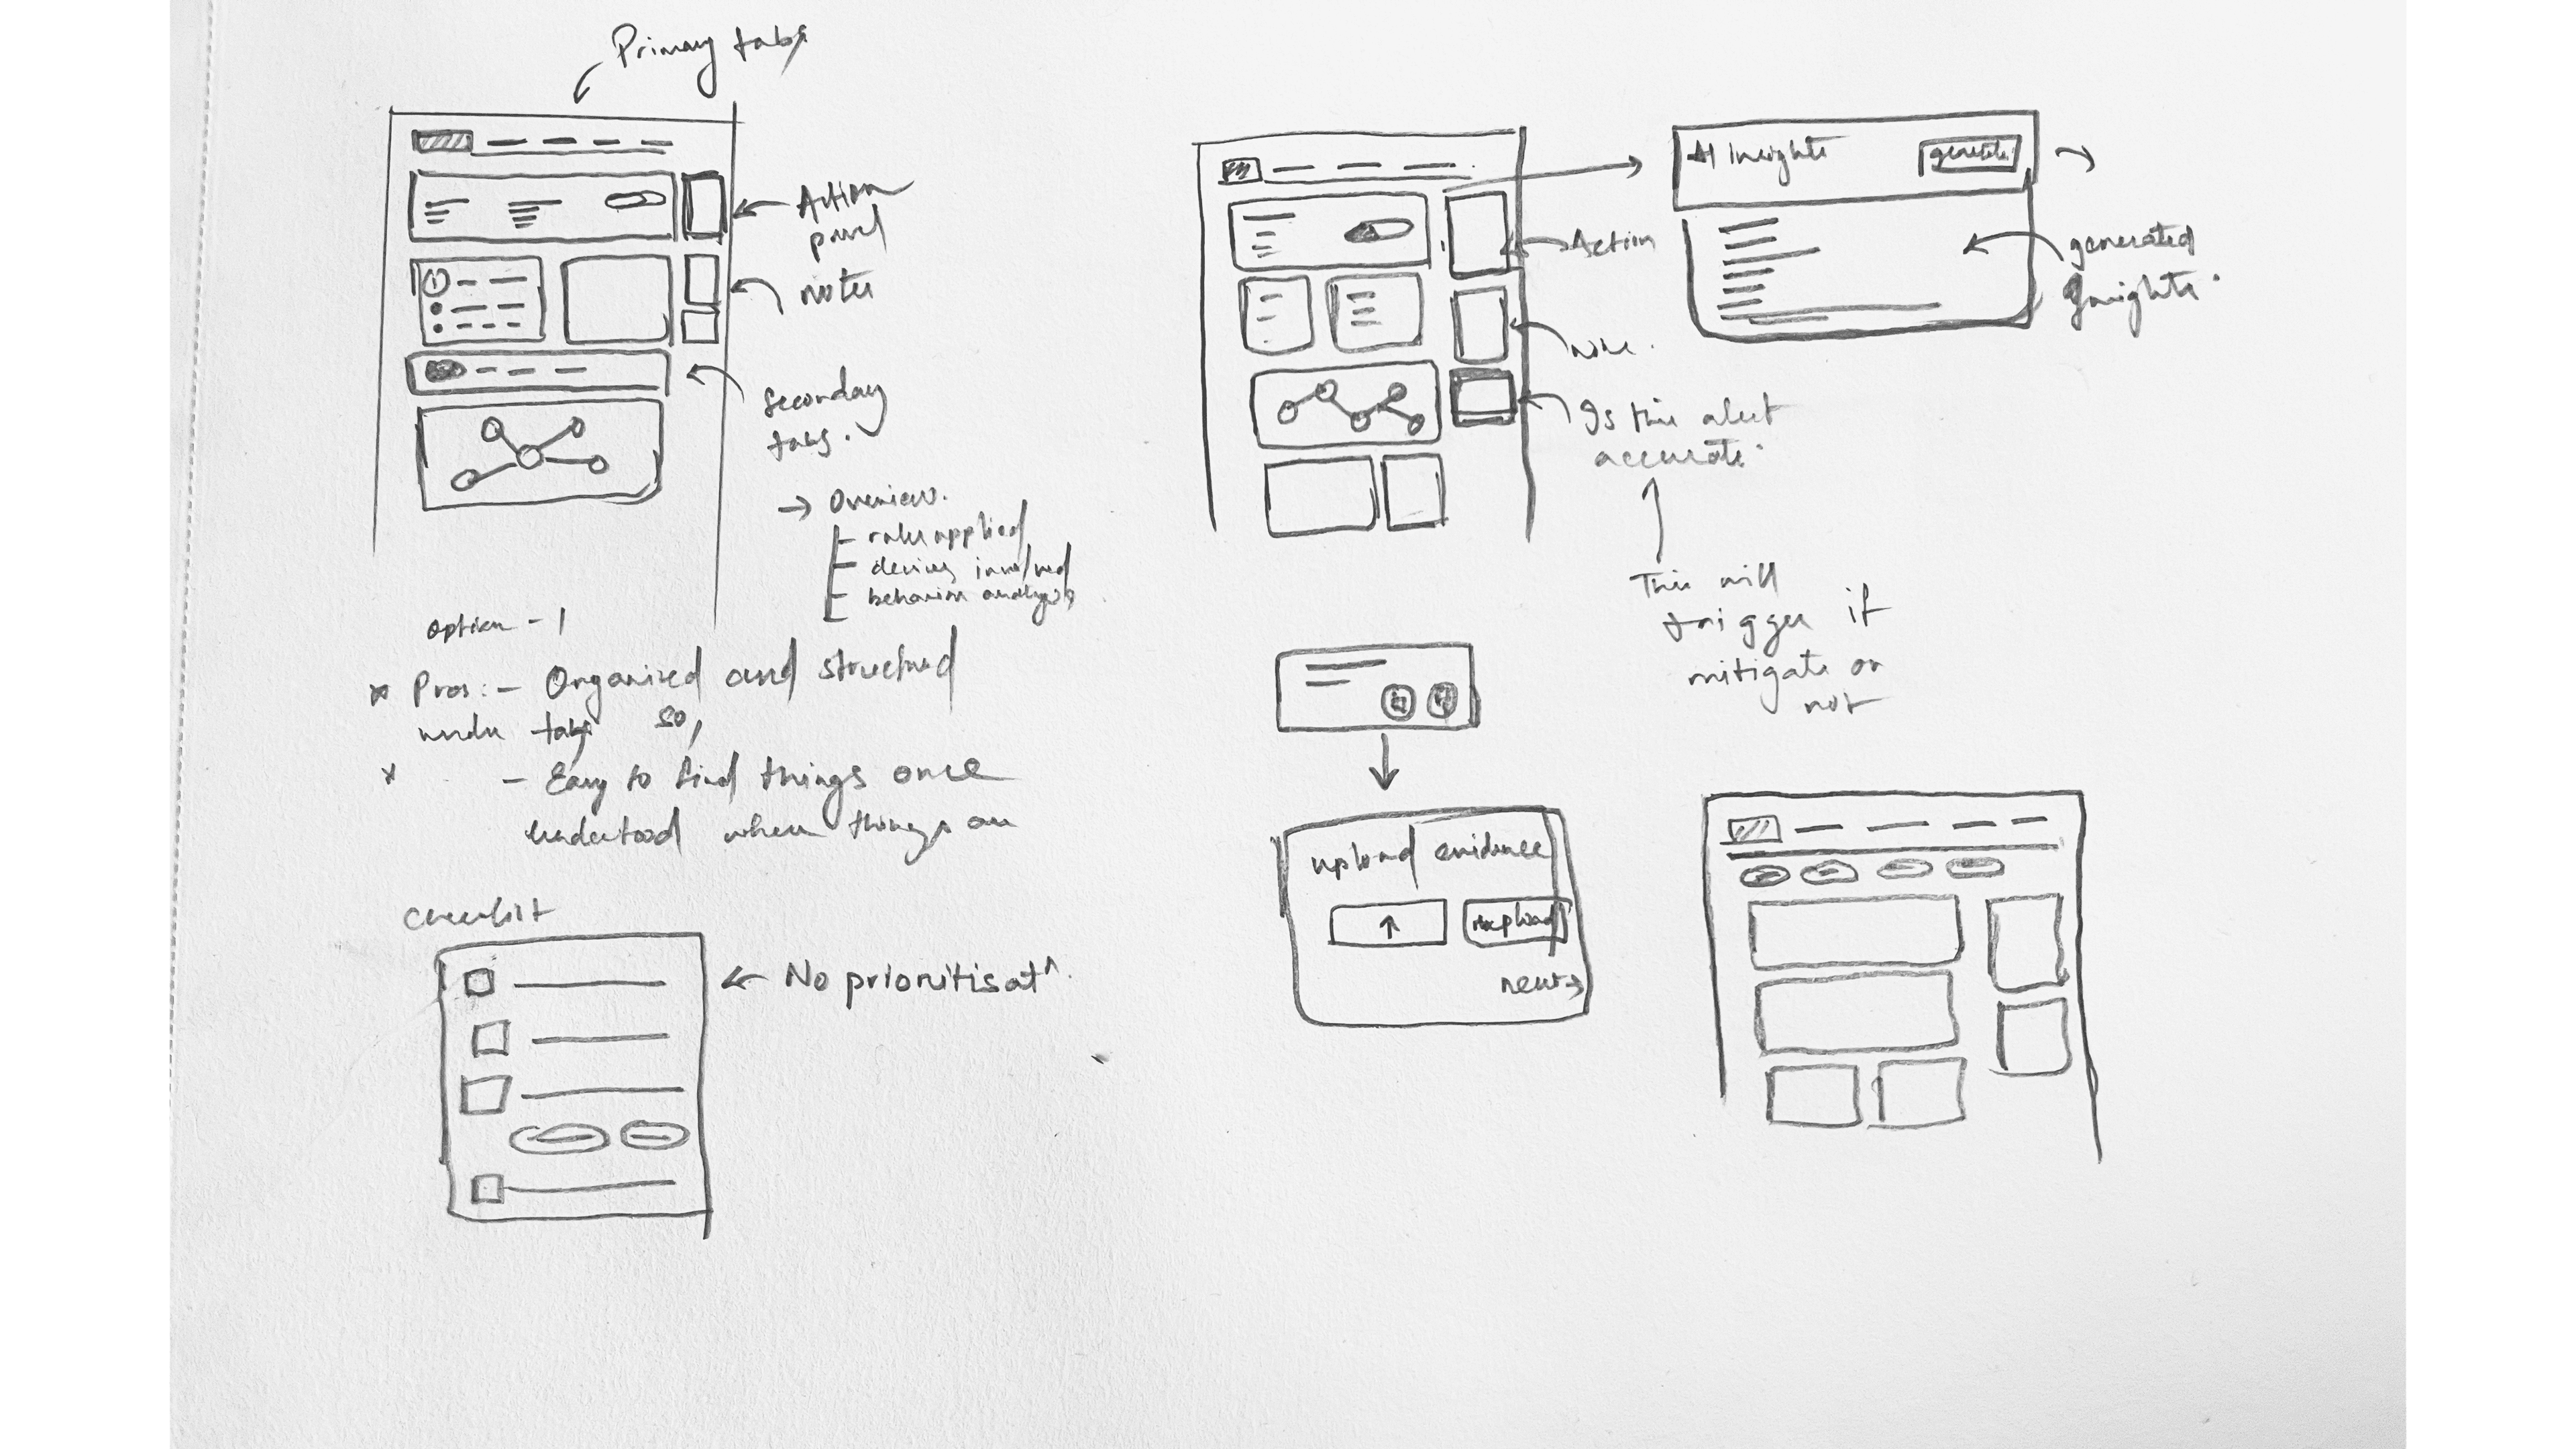 Primary tabs
Action
panel
notes
Secondary
tabs.
→ Overview.
- rules applied
- devices involved
- behavior analysis
option - 1
* Pros: - Organized and structured
under tabs so,
* - Easy to find things once
understood where things are
Checklist
← No prioritisatⁿ.
AI insights
generate
generated
Insights.
Action
note.
Is this alert
accurate.
This will
trigger if
mitigate or
not
upload evidence
↑
upload
next →